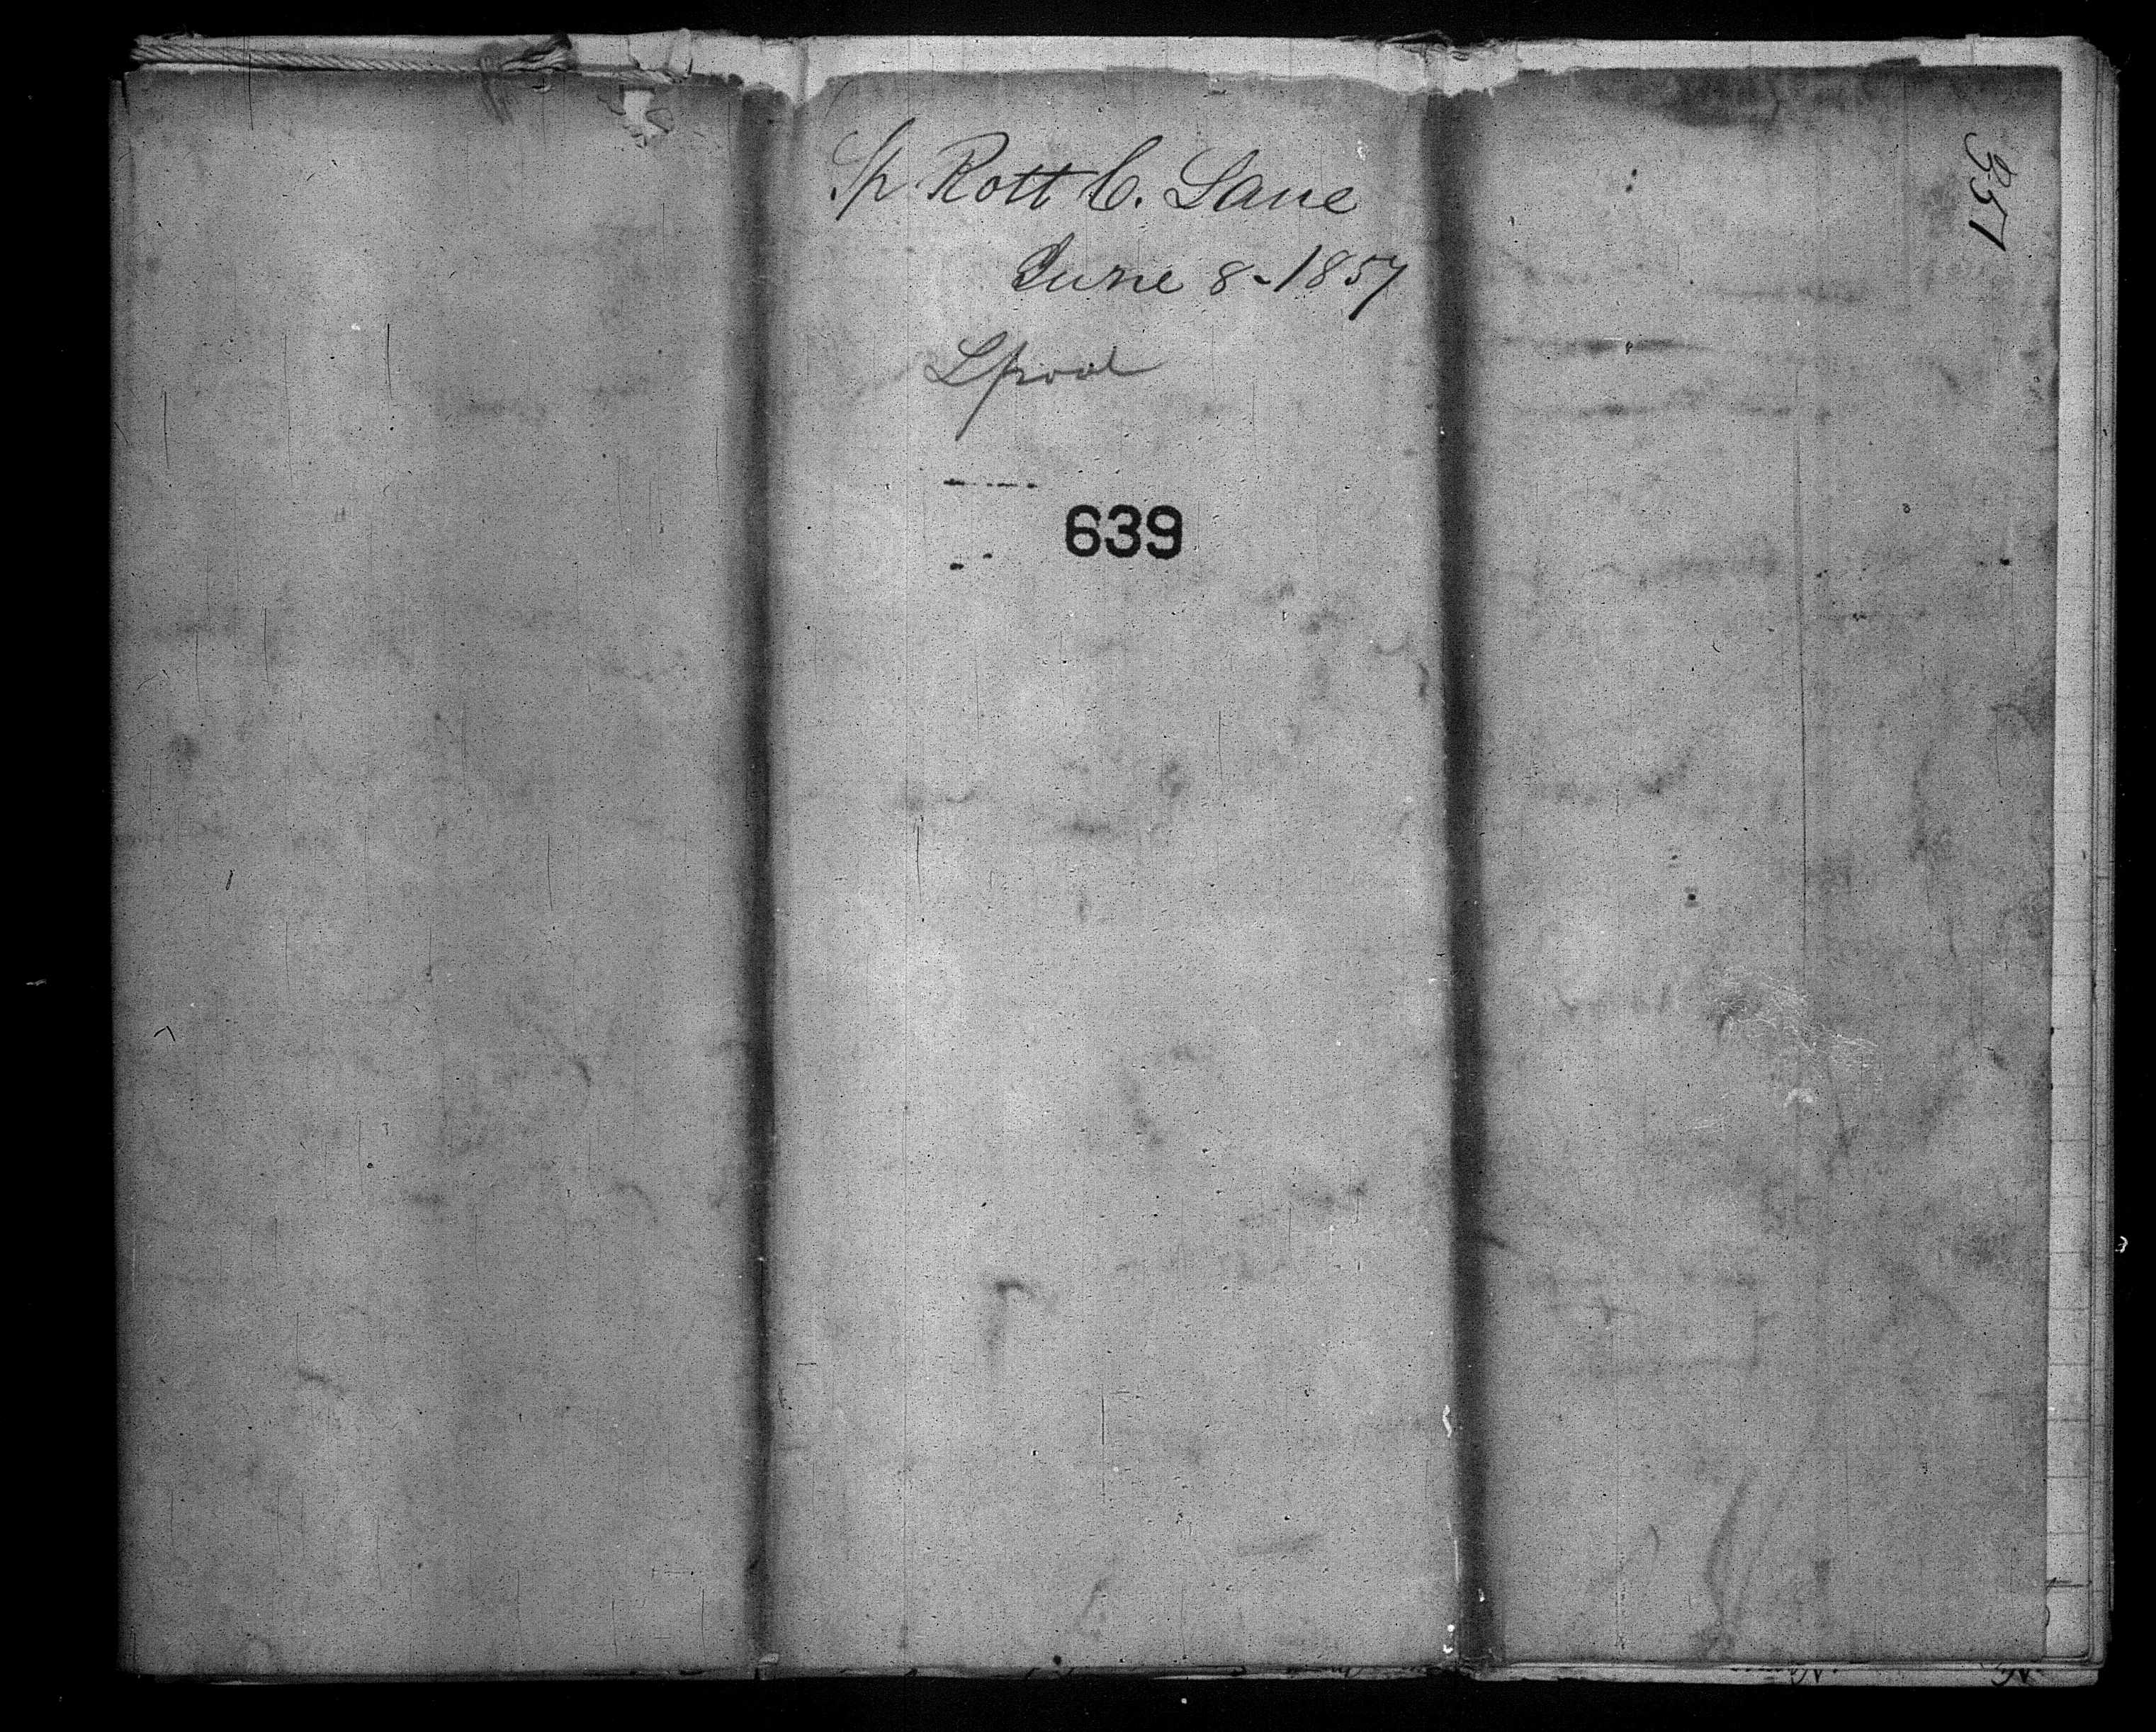 Sp Robt C. Lane
June 8-1857
Lpool
639
357